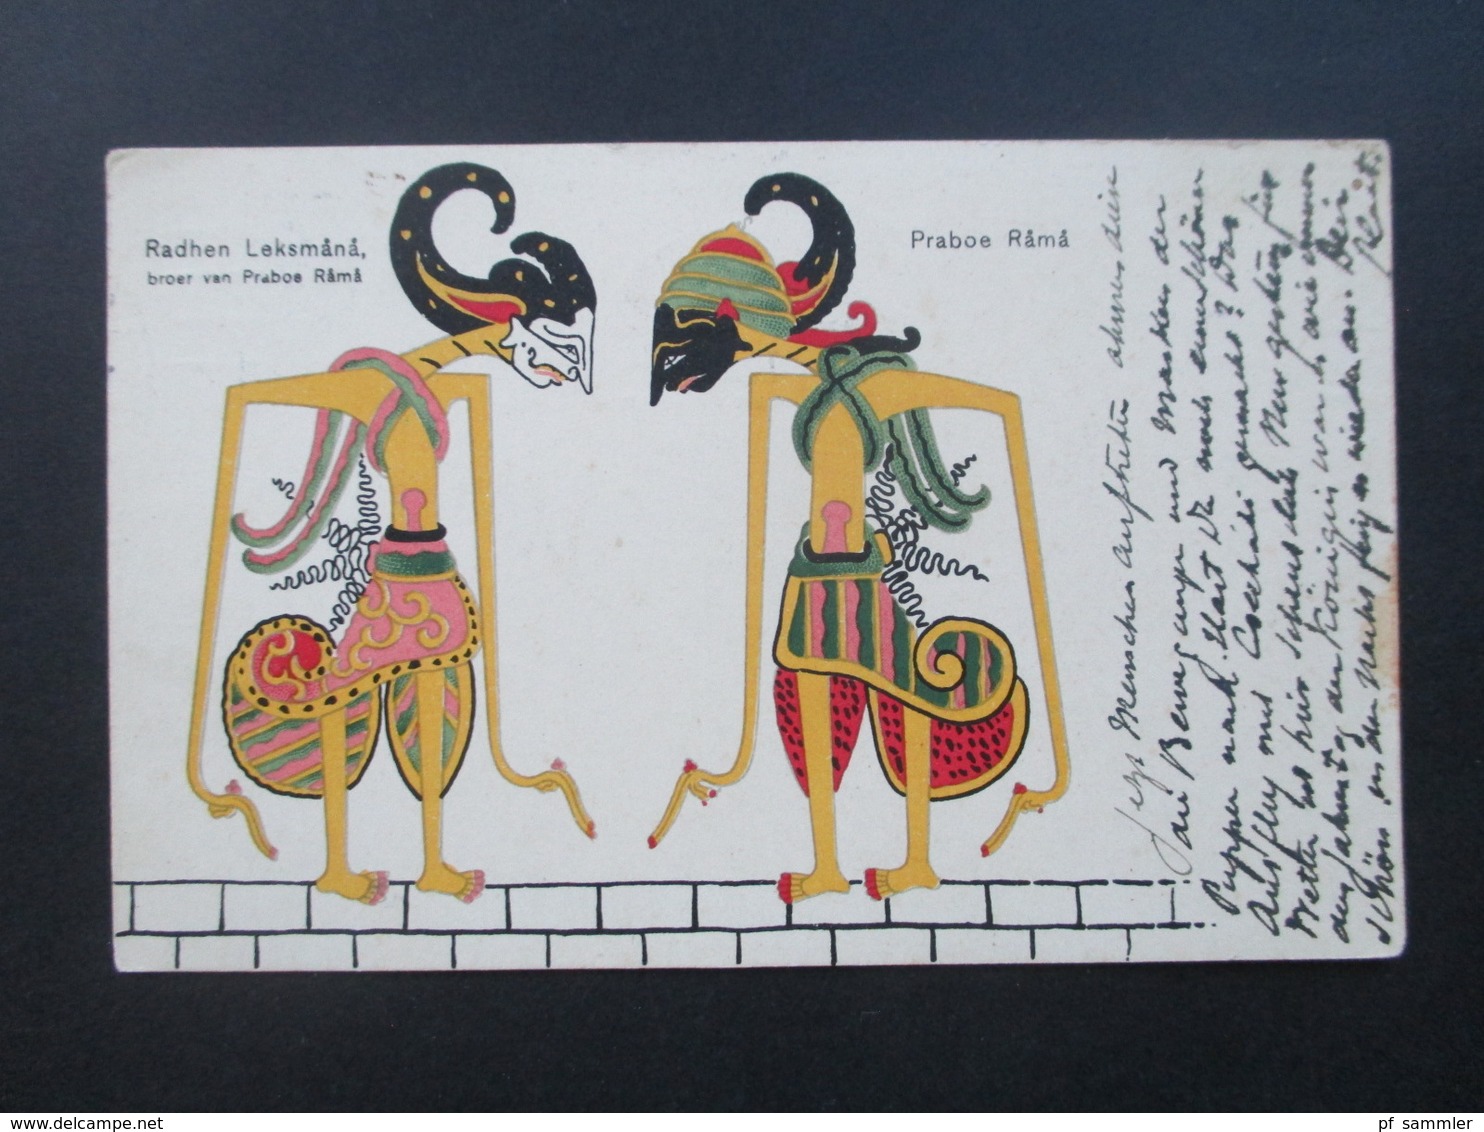 Radhen Leksmånå,
broer van Praboe Råmå
Praboe Råmå
Jetzt Menschen auftreten ahmen sie
die Bewegungen und Masken der
Puppen nach. Hast Du noch einen schönen
Ausflug mit gemacht? Das
Wetter hat hier scheusslich. Nur gestern für
den Jahrestag der Königin war es wie immer
schön, in der Nacht fing es wieder an. Dein
delcampe.net
pf_sammler